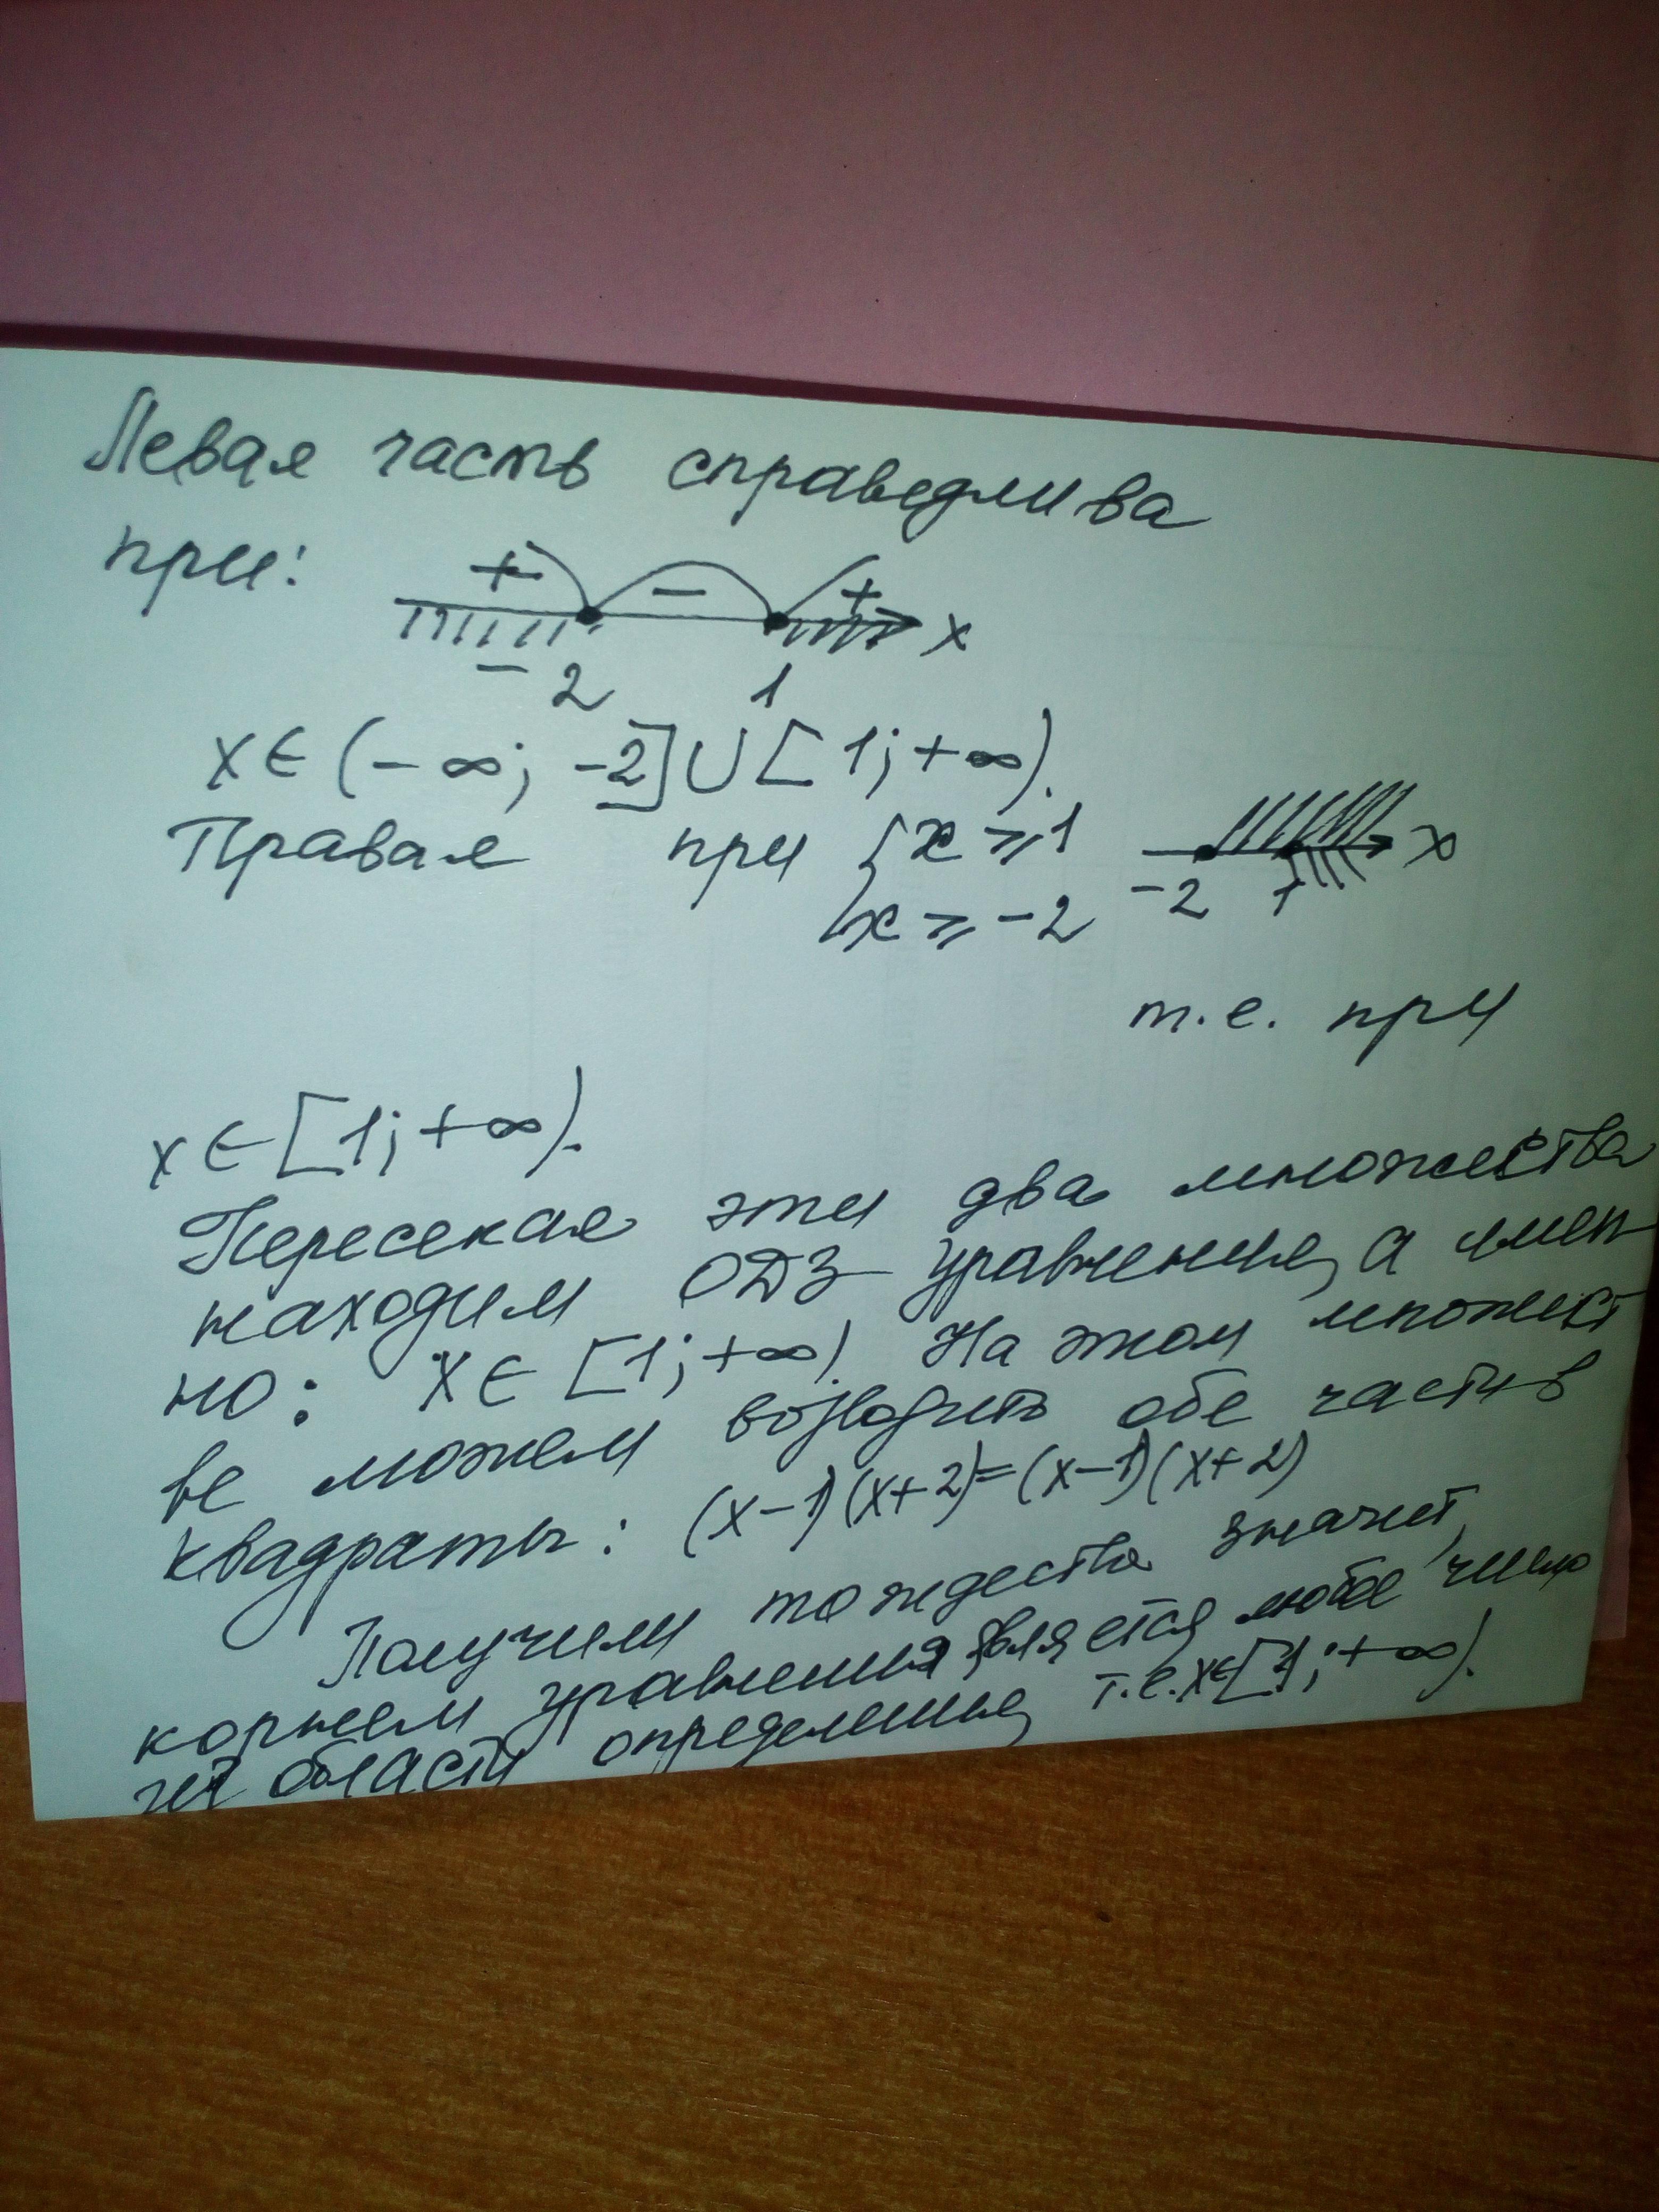 Левая часть справедлива
при: + − + x
−2 1
x ∈ (−∞; −2] ∪ [1; +∞).
Правая при { x ⩾ 1 x
x ⩾ −2 −2 1
т.е. при
x ∈ [1; +∞).
Пересекая эти два множества
находим ОДЗ уравнения, а имен
но: x ∈ [1; +∞). На этом множест
ве можем возводить обе части в
квадраты: (x−1)(x+2)=(x−1)(x+2)
Получим тождество значит,
корнем уравнения является любое число
из области определения, т.е. x∈[1; +∞).